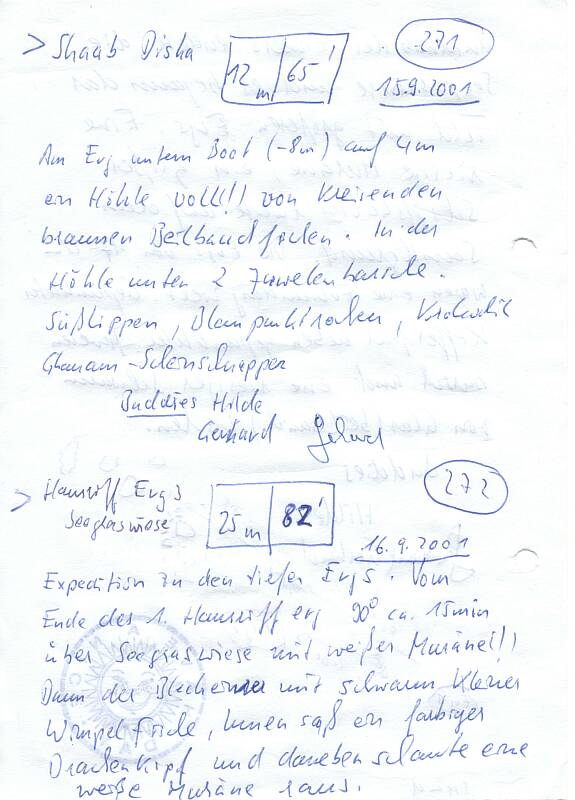 > Shaab Disha 12m 65' 271
15.9.2001
Am Erg unterm Boot (-8m) auf 4m
ein Höhle voll!!! von kreisenden
braunen Beilbauchfischen. In der
Höhle unten 2 Juwelenbarsche.
Süßlippen, Blaupunktrochen, Krokodil
Ghanam - Scheinschnapper
Buddies Hilde
Gerhard
> Hausriff Ergs 25m 82' 272
Seegraswiese
16.9.2001
Expedition zu den tiefen Ergs. Vom
Ende des 1. Hausriff erg 90° ca. 15min
über Seegraswiese mit weißer Muräne!!!
Dann der mit schwarm kleiner
Wimpelfische, Innen saß ein farbiger
Drachenkopf und daneben schaute eine
weiße Muräne raus.